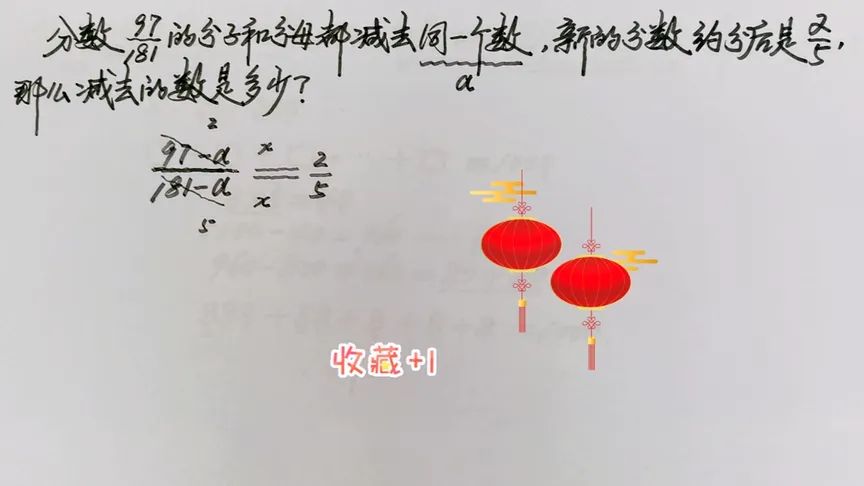 分数 97/181 的分子和分母都减去同一个数，新的分数约分后是 2/5，
a
那么减去的数是多少？
2
97-a x 2
181-a x 5
5
收藏+1